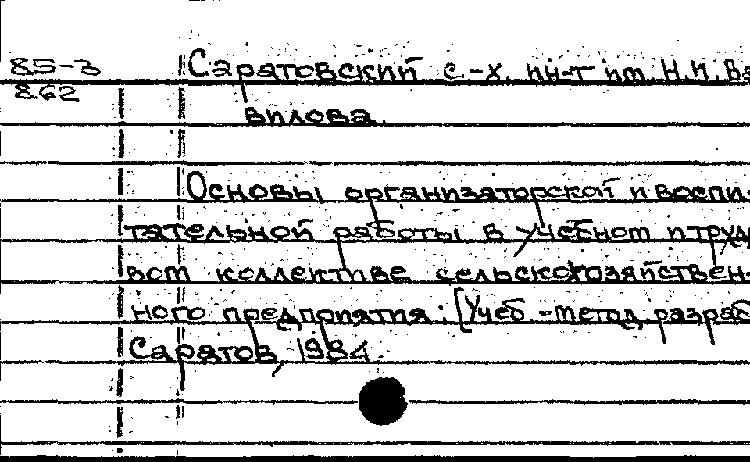 85-3
862
Саратовский с-х. ин-т им. Н.И. Ва
вилова.
Основы организаторской и воспи-
тательной работы в учебном и трудо
вом коллективе сельскохозяйствен-
ного предприятия: [Учеб.-метод. разраб
Саратов, 1984.